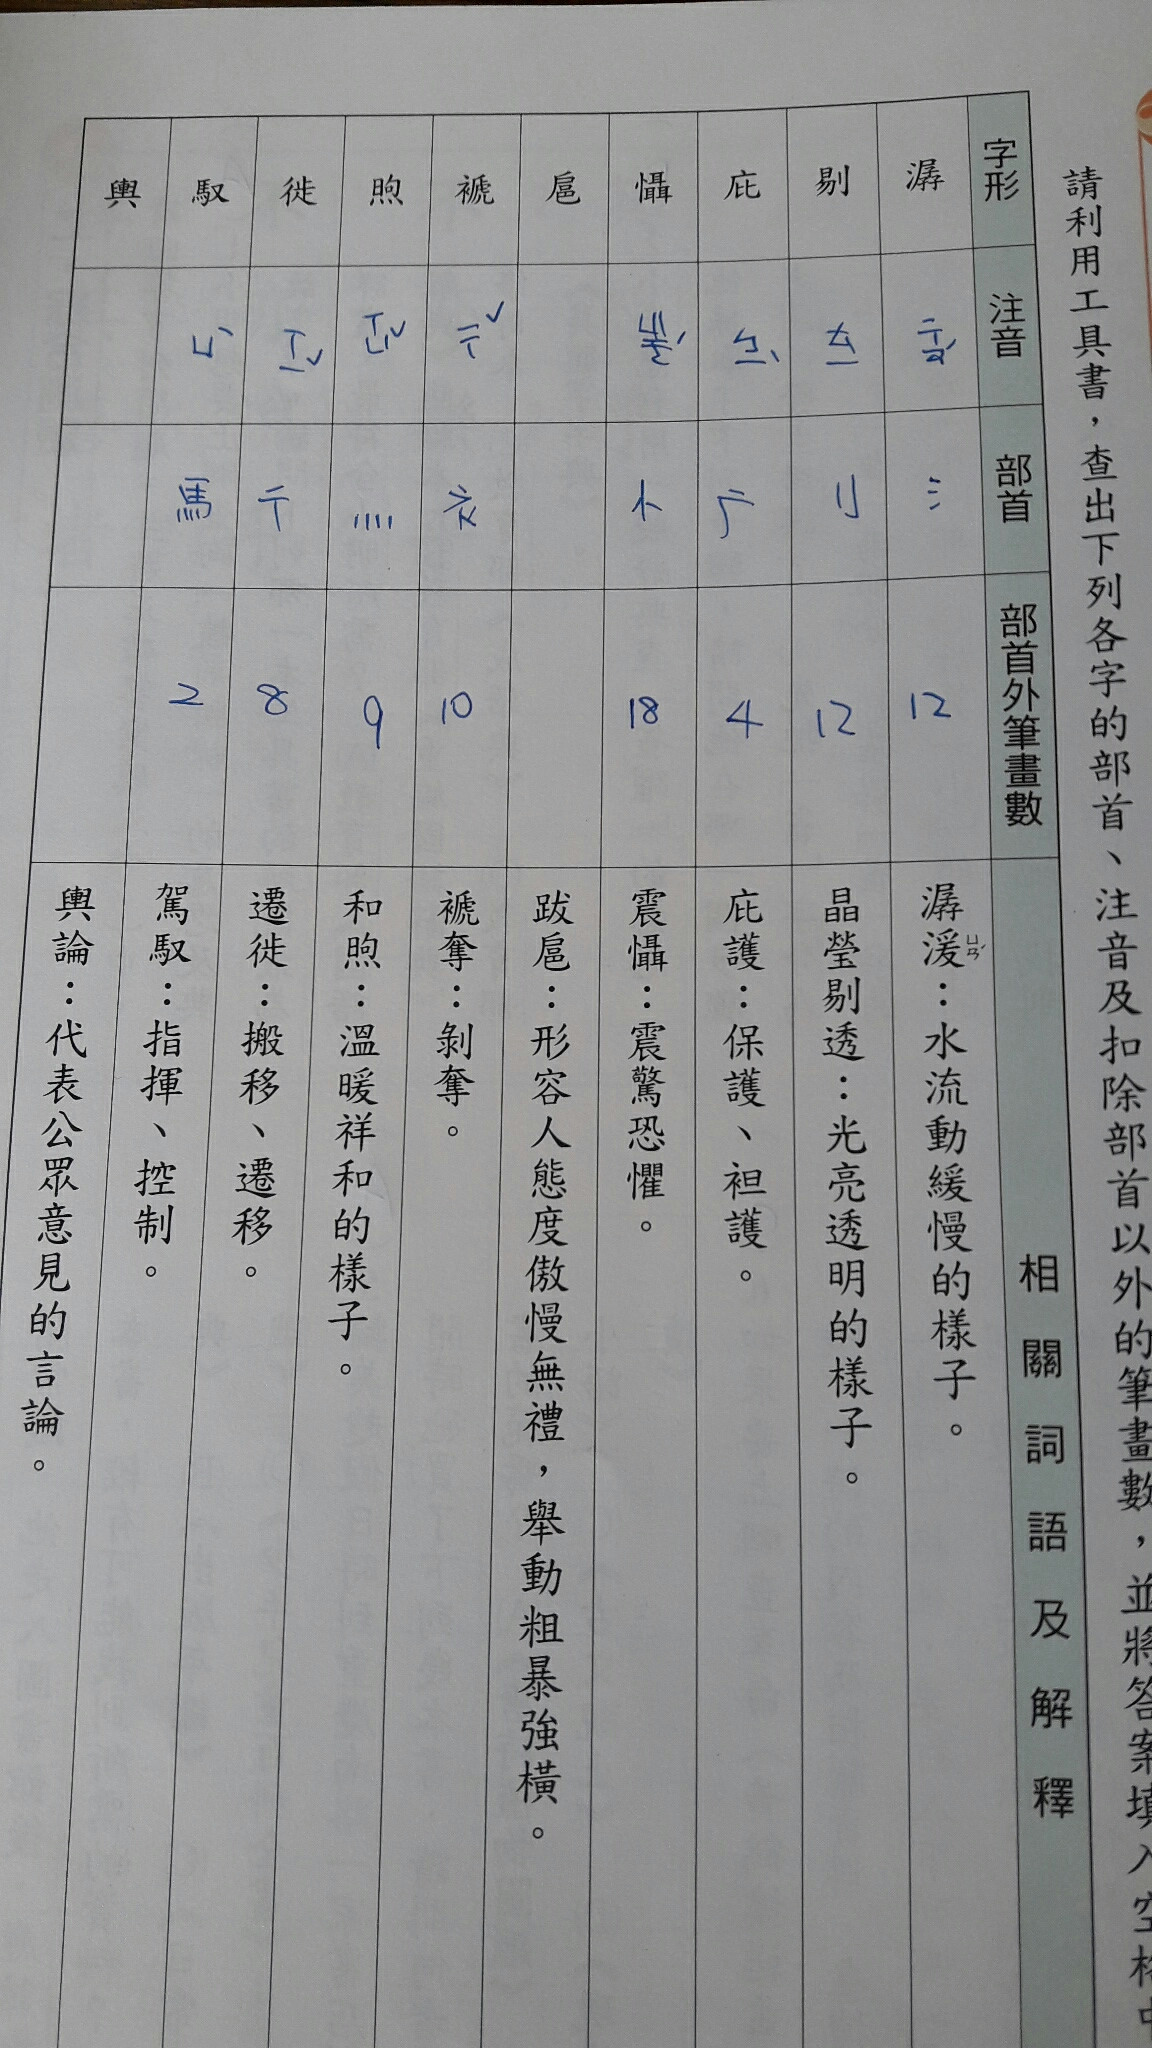 請利用工具書，查出下列各字的部首、注音及扣除部首以外的筆畫數，並將答案填入空格中
字形 注音 部首 部首外筆畫數 相關詞語及解釋
潺 ㄔㄢˊ 氵 12 潺湲ㄩㄢˊ：水流動緩慢的樣子。
剔 刂 12 晶瑩剔透：光亮透明的樣子。
庇 ㄅㄧˋ 广 4 庇護：保護、袒護。
懾 忄 18 震懾：震驚恐懼。
扈 跋扈：形容人態度傲慢無禮，舉動粗暴強橫。
褫 ㄔˇ 衣 10 褫奪：剝奪。
煦 ㄒㄩˇ 灬 9 和煦：溫暖祥和的樣子。
徙 ㄒㄧˇ 彳 8 遷徙：搬移、遷移。
馭 ㄩˋ 馬 2 駕馭：指揮、控制。
輿 輿論：代表公眾意見的言論。